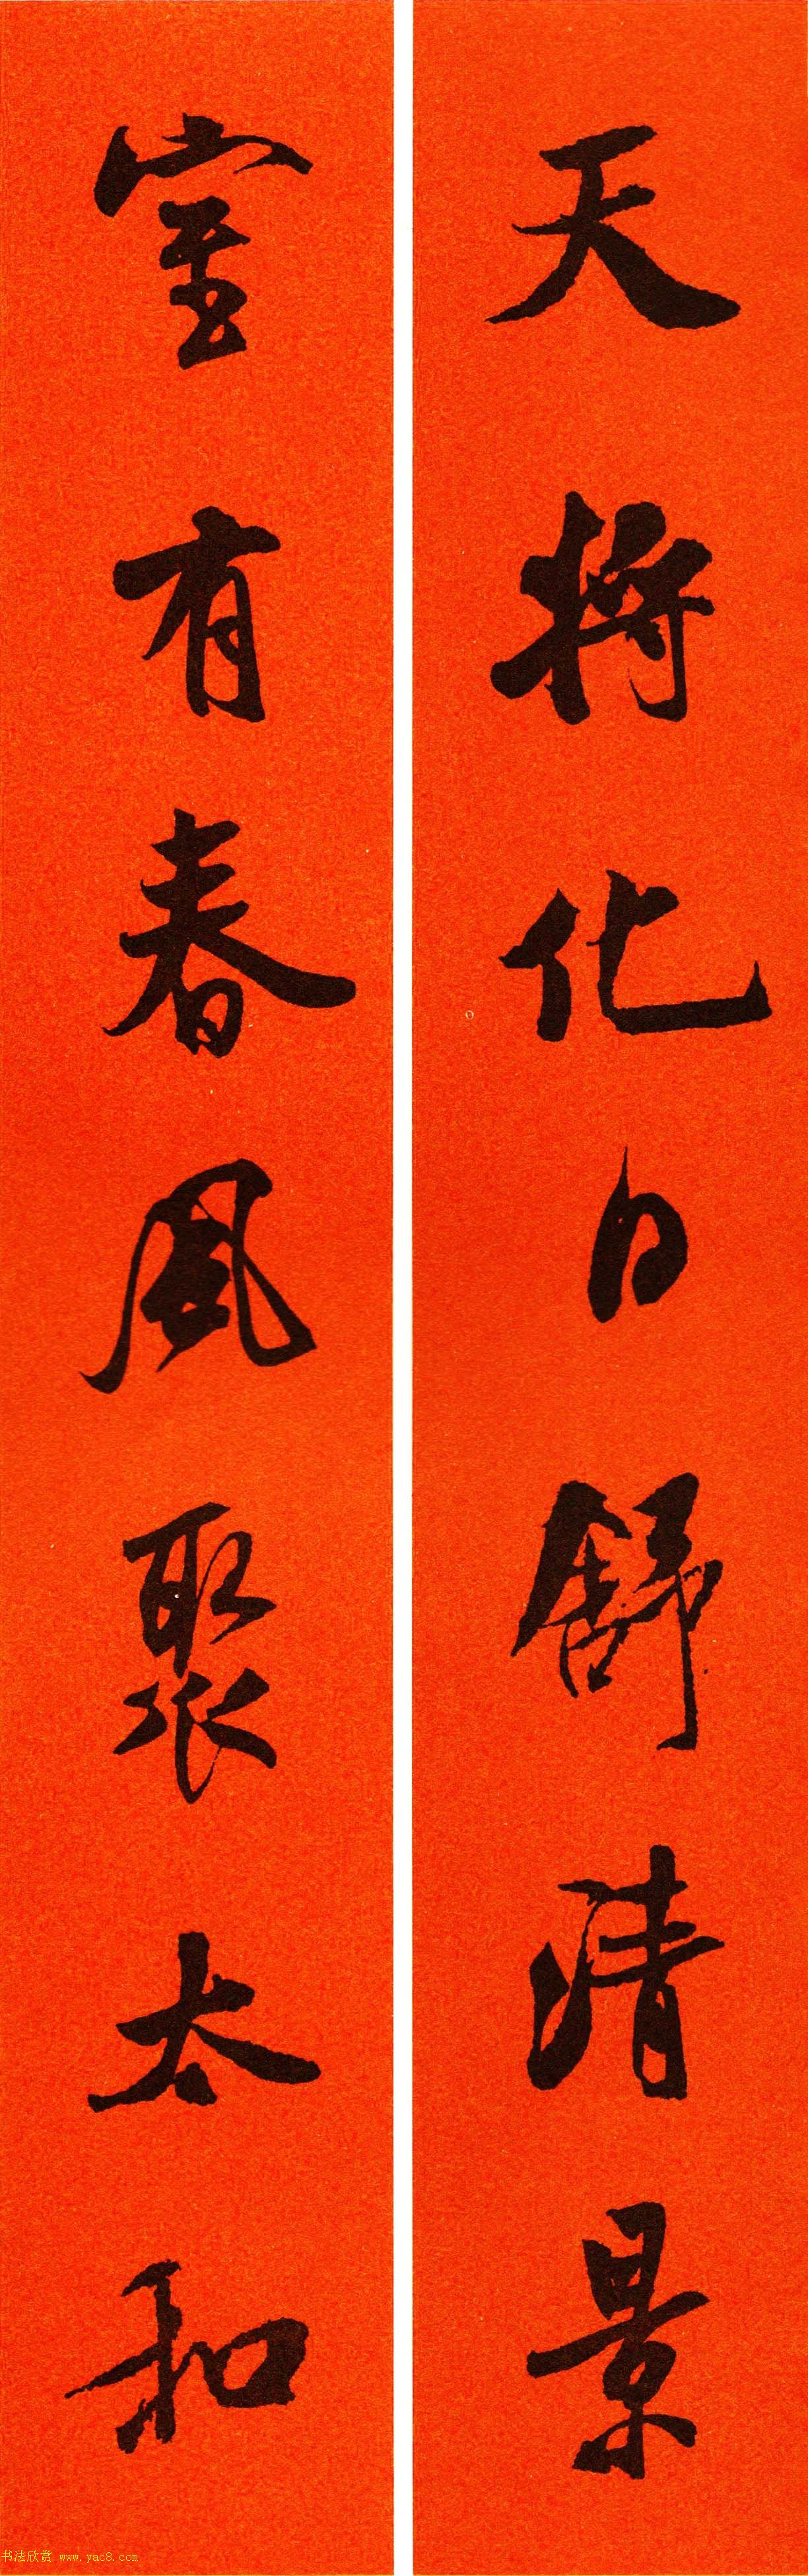 天将化日舒清景
室有春風聚太和
书法欣赏 www.yac8.com